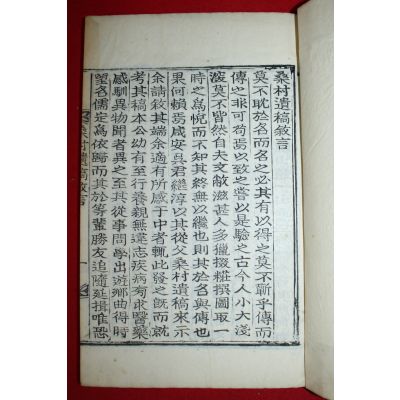 桑村遺稿敘言
莫不耽於名而名之必其有以得之莫不蘄乎傳而
傳之非可苟焉以致之嘗以是驗之古今人小大淺
深莫不皆然自夫文敝滋甚人多獵掇糚撰圖取一
時之爲悅而不知其終無以繼也則其於名與傳也
果何賴焉咸安吳君繼淳以其從父桑村遺稿來示
余請敘其端余適有所感于中者輒此發之旣而就
考其稿本公幼有至行養親無違志疾病旬求醫藥
感馴異物聞者異之至其從事問學出遊鄉曲得時
望名儒定爲依歸而其於等輩勝友追隨延揖唯恐
桑村遺稿敘言
一